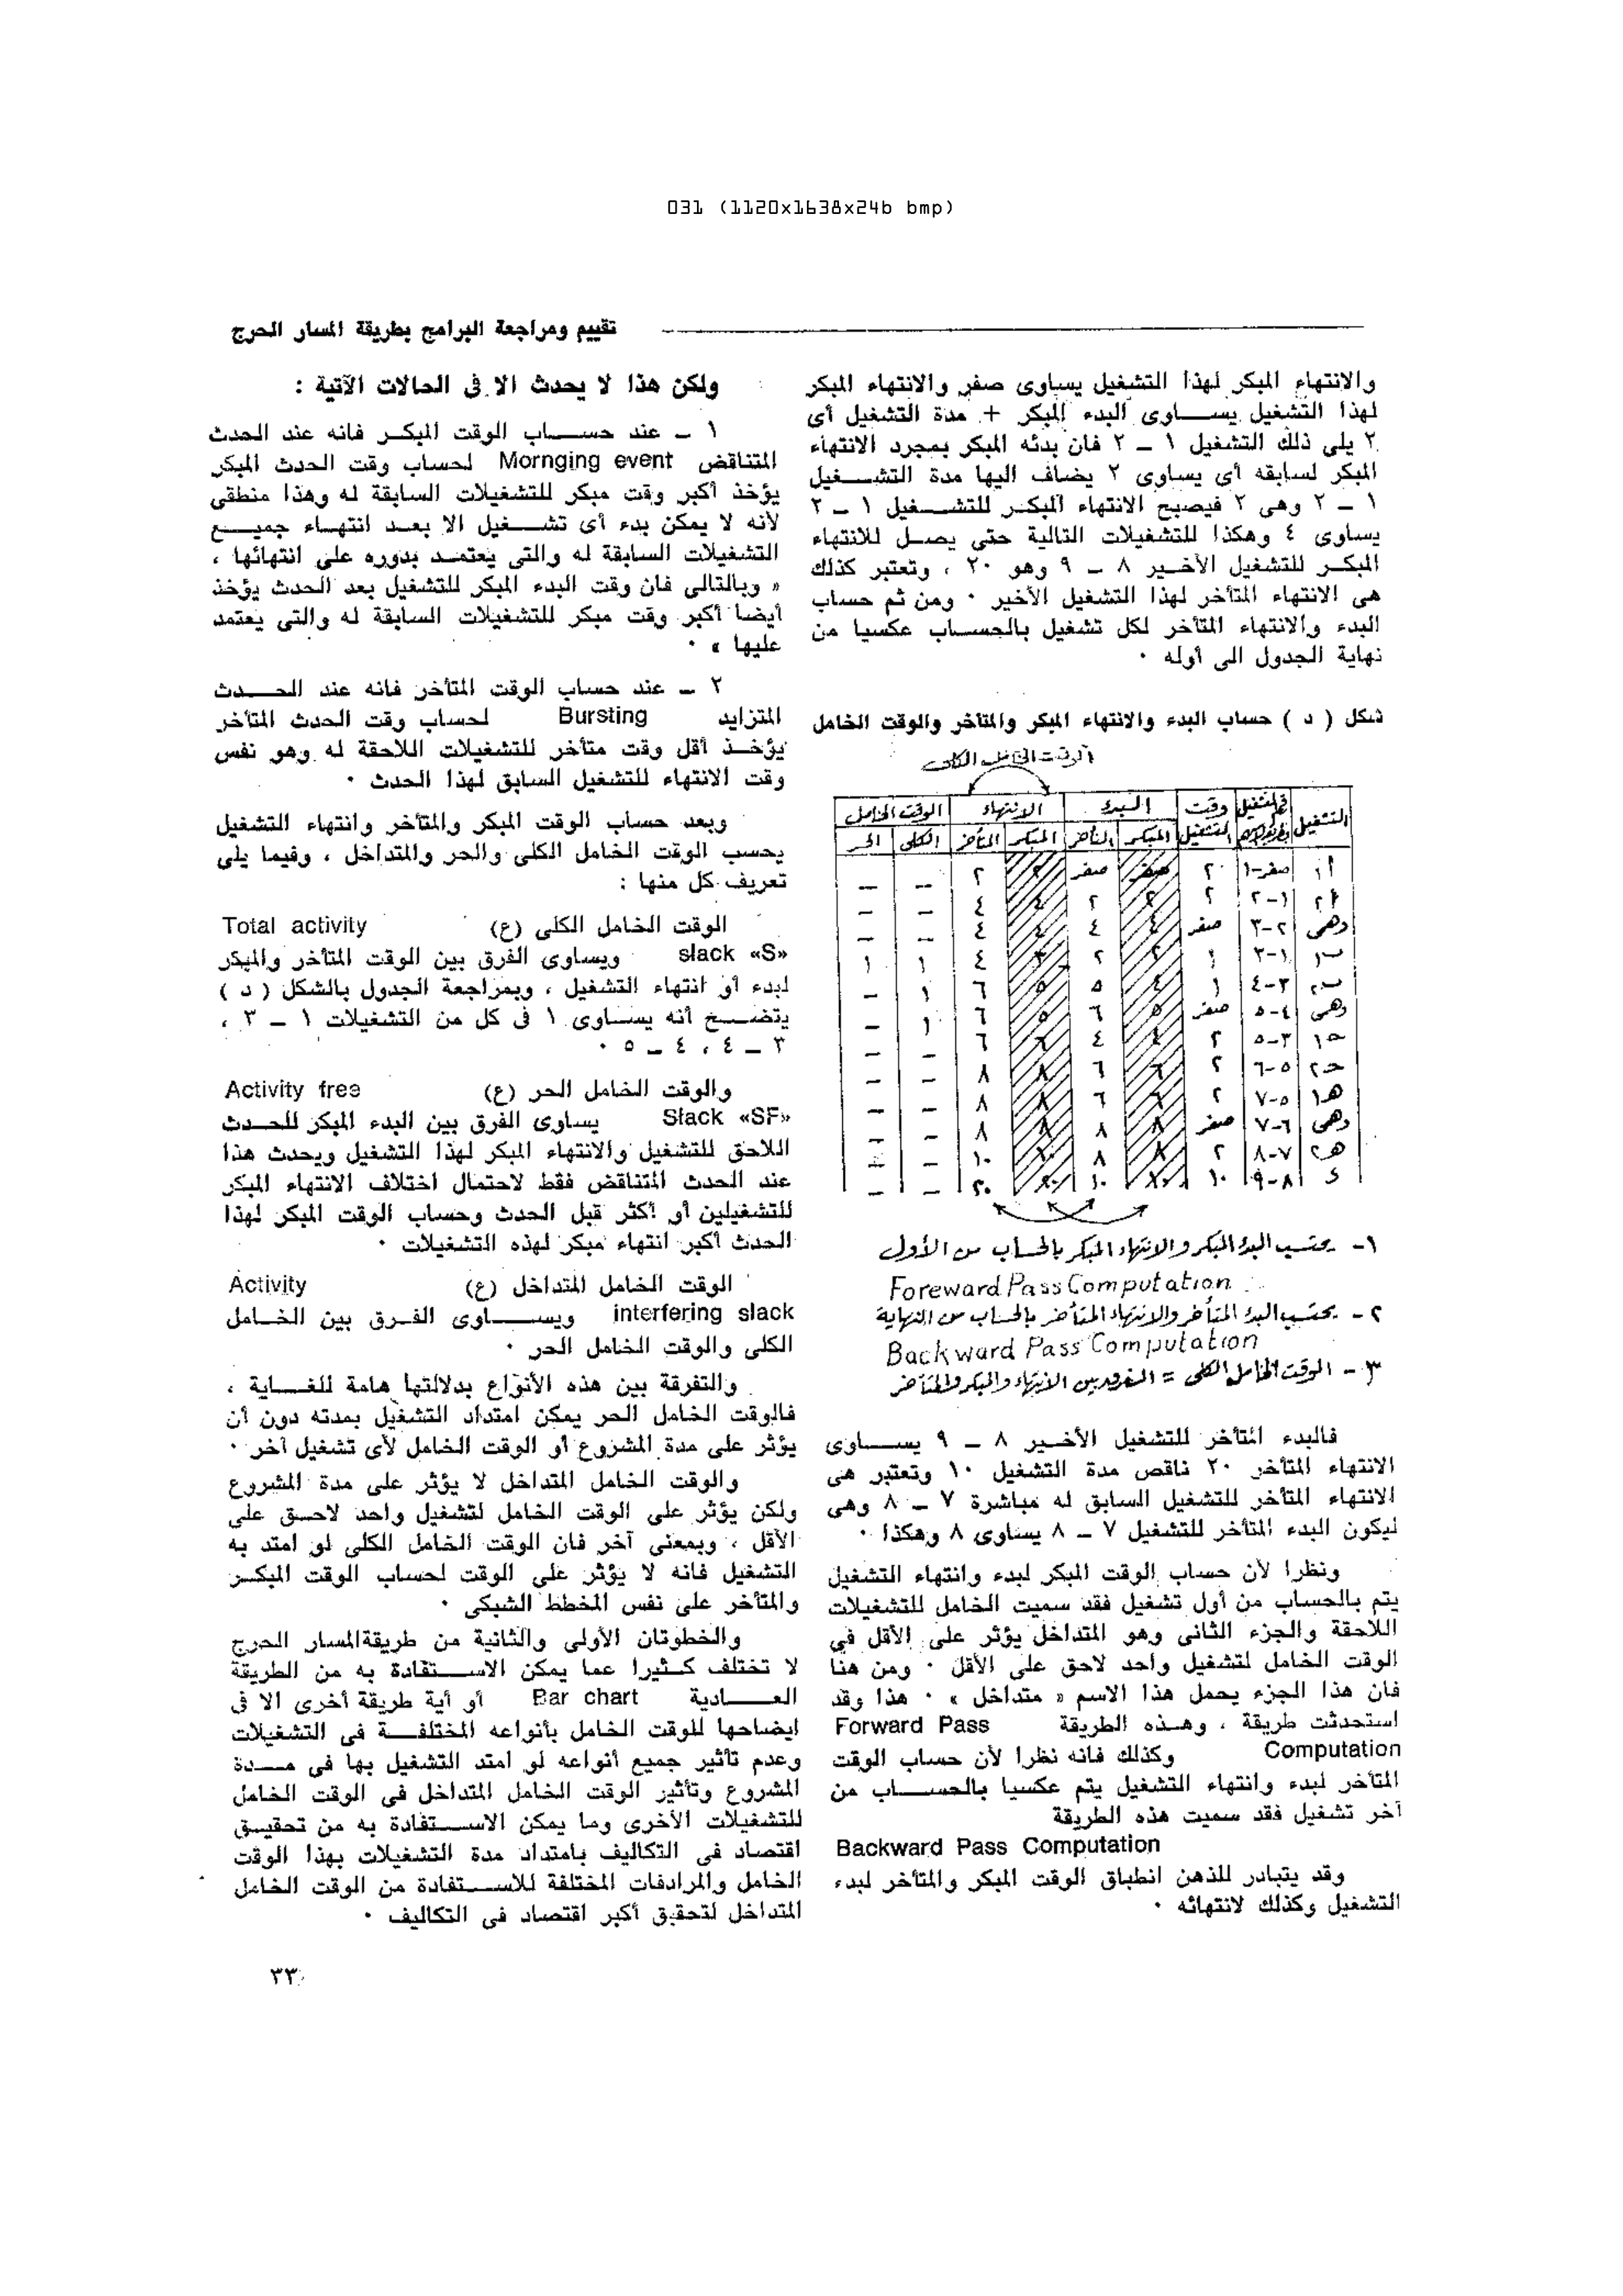 031 (1120x1638x24b bmp)
تقييم ومراجعة البرامج بطريقة المسار الحرج
والانتهاء المبكر لهذا التشغيل يساوى صفر والانتهاء المبكر
لهذا التشغيل يساوى البدء المبكر + مدة التشغيل أى
٢ يلى ذلك التشغيل ١ – ٢ فان بدئه المبكر بمجرد الانتهاء
المبكر لسابقه أى يساوى ٢ يضاف اليها مدة التشغيل
١ – ٢ وهى ٢ فيصبح الانتهاء المبكر للتشغيل ١ – ٢
يساوى ٤ وهكذا للتشغيلات التالية حتى يصل للانتهاء
المبكر للتشغيل الأخير ٨ – ٩ وهو ٢٠ ، وتعتبر كذلك
هى الانتهاء المتأخر لهذا التشغيل الأخير ٠ ومن ثم حساب
البدء والانتهاء المتأخر لكل تشغيل بالحساب عكسيا من
نهاية الجدول الى أوله ٠
شكل ( د ) حساب البدء والانتهاء المبكر والمتأخر والوقت الخامل
الوقت الخامل الكلى
التشغيل وقت البدء الانتهاء الوقت الخامل
التشغيل المبكر المتأخر المبكر المتأخر الكلى الحر
أ١ صفر-١ ٢ صفر صفر ٢ ٢ – –
أ٢ ١-٢ ٢ ٢ ٢ ٤ ٤ – –
وهمى ٢-٣ صفر ٤ ٤ ٤ ٤ – –
ب١ ١-٣ ١ ٢ ٢ ٣ ٤ ١ ١
ب٢ ٣-٤ ١ ٤ ٥ ٥ ٦ ١ –
وهمى ٤-٥ صفر ٥ ٦ ٥ ٦ ١ –
ح١ ٣-٥ ٢ ٤ ٤ ٦ ٦ – –
ح٢ ٥-٦ ٢ ٦ ٦ ٨ ٨ – –
هـ١ ٥-٧ ٢ ٦ ٦ ٨ ٨ – –
وهمى ٦-٧ صفر ٨ ٨ ٨ ٨ – –
هـ٢ ٧-٨ ٢ ٨ ٨ ١٠ ١٠ – –
د ٨-٩ ١٠ ١٠ ١٠ ٢٠ ٢٠ – –
١- يحتسب البدء المبكر والانتهاء المبكر بالحساب من الأول
Foreward Pass Computation
٢- يحتسب البدء المتأخر والانتهاء المتأخر بالحساب من النهاية
Backward Pass Computation
٣- الوقت الخامل الكلى = الفرق بين الانتهاء والمبكر والمتأخر
فالبدء المتأخر للتشغيل الأخير ٨ – ٩ يساوى
الانتهاء المتأخر ٢٠ ناقص مدة التشغيل ١٠ وتعتبر هى
الانتهاء المتأخر للتشغيل السابق له مباشرة ٧ – ٨ وهى
ليكون البدء المتأخر للتشغيل ٧ – ٨ يساوى ٨ وهكذا ٠
ونظرا لأن حساب الوقت المبكر لبدء وانتهاء التشغيل
يتم بالحساب من أول تشغيل فقد سميت الخامل للتشغيلات
اللاحقة والجزء الثانى وهو المتداخل يؤثر على الأقل في
الوقت الخامل لتشغيل واحد لاحق على الأقل ٠ ومن هنا
فان هذا الجزء يحمل هذا الاسم « متداخل » ٠ هذا وقد
استحدثت طريقة ، وهذه الطريقة Forward Pass
Computation وكذلك فانه نظرا لأن حساب الوقت
المتأخر لبدء وانتهاء التشغيل يتم عكسيا بالحساب من
آخر تشغيل فقد سميت هذه الطريقة
Backward Pass Computation
وقد يتبادر للذهن انطباق الوقت المبكر والمتأخر لبدء
التشغيل وكذلك لانتهائه ٠
ولكن هذا لا يحدث الا فى الحالات الآتية :
١ – عند حساب الوقت المبكر فانه عند الحدث
المتناقض Mornging event لحساب وقت الحدث المبكر
يؤخذ أكبر وقت مبكر للتشغيلات السابقة له وهذا منطقى
لأنه لا يمكن بدء أى تشغيل الا بعد انتهاء جميع
التشغيلات السابقة له والتى يعتمد بدوره على انتهائها ،
« وبالتالى فان وقت البدء المبكر للتشغيل بعد الحدث يؤخذ
أيضا أكبر وقت مبكر للتشغيلات السابقة له والتى يعتمد
عليها » ٠
٢ – عند حساب الوقت المتأخر فانه عند الحدث
المتزايد Bursting لحساب وقت الحدث المتأخر
يؤخذ أقل وقت متأخر للتشغيلات اللاحقة له وهو نفس
وقت الانتهاء للتشغيل السابق لهذا الحدث ٠
وبعد حساب الوقت المبكر والمتأخر وانتهاء التشغيل
يحسب الوقت الخامل الكلى والحر والمتداخل ، وفيما يلى
تعريف كل منها :
الوقت الخامل الكلى (ع) Total activity
slack «S» ويساوى الفرق بين الوقت المتأخر والمبكر
لبدء أو انتهاء التشغيل ، وبمراجعة الجدول بالشكل ( د )
يتضح أنه يساوى ١ فى كل من التشغيلات ١ – ٣ ،
٣ – ٤ ، ٤ – ٥ ٠
والوقت الخامل الحر (ع) Activity free
Slack «SF» يساوى الفرق بين البدء المبكر للحدث
اللاحق للتشغيل والانتهاء المبكر لهذا التشغيل ويحدث هذا
عند الحدث المتناقض فقط لاحتمال اختلاف الانتهاء المبكر
للتشغيلين أو أكثر قبل الحدث وحساب الوقت المبكر لهذا
الحدث أكبر انتهاء مبكر لهذه التشغيلات ٠
الوقت الخامل المتداخل (ع) Activity
interfering slack ويساوى الفرق بين الخامل
الكلى والوقت الخامل الحر ٠
والتفرقة بين هذه الأنواع بدلالتها هامة للغاية ،
فالوقت الخامل الحر يمكن امتداد التشغيل بمدته دون أن
يؤثر على مدة المشروع أو الوقت الخامل لأى تشغيل آخر ٠
والوقت الخامل المتداخل لا يؤثر على مدة المشروع
ولكن يؤثر على الوقت الخامل لتشغيل واحد لاحق على
الأقل ، وبمعنى آخر فان الوقت الخامل الكلى لو امتد به
التشغيل فانه لا يؤثر على الوقت لحساب الوقت المبكر
والمتأخر على نفس المخطط الشبكى ٠
والخطوتان الأولى والثانية من طريقة المسار الحرج
لا تختلف كثيرا عما يمكن الاستفادة به من الطريقة
العادية Bar chart أو أية طريقة أخرى الا فى
ايضاحها للوقت الخامل بأنواعه المختلفة فى التشغيلات
وعدم تأثير جميع أنواعه لو امتد التشغيل بها فى مدة
المشروع وتأثير الوقت الخامل المتداخل فى الوقت الخامل
للتشغيلات الأخرى وما يمكن الاستفادة به من تحقيق
اقتصاد فى التكاليف بامتداد مدة التشغيلات بهذا الوقت
الخامل والمرادفات المختلفة للاستفادة من الوقت الخامل
المتداخل لتحقيق أكبر اقتصاد فى التكاليف ٠
٣٣